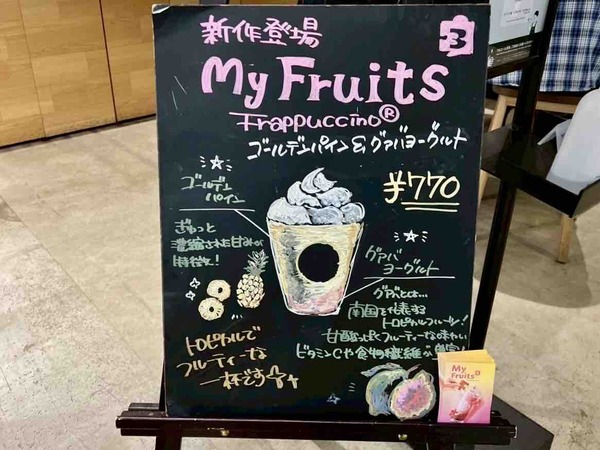 新作登場
3
My Fruits
Frappuccino®
ゴールデンパイン&グァバヨーグルト
¥770
ゴールデン
パイン
ぎゅっと
濃縮された甘みが
特徴!
グァバ
ヨーグルト
グァバとは…
南国を代表する
トロピカルフルーツ!
甘酸っぱくフルーティーな味わい
ビタミンCや食物繊維が
トロピカルで
フルーティーな
一杯です
My
Fruits